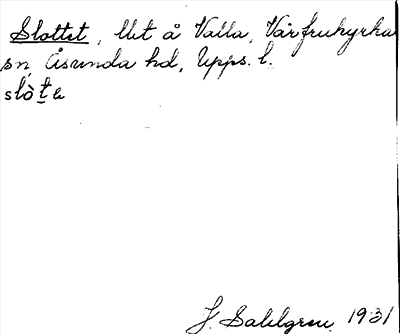 Slottet, lht å Valla, Vårfrukyrka
sn, Åsunda hd, Upps. l.
slòt̲ɐ
J. Sahlgren. 1931